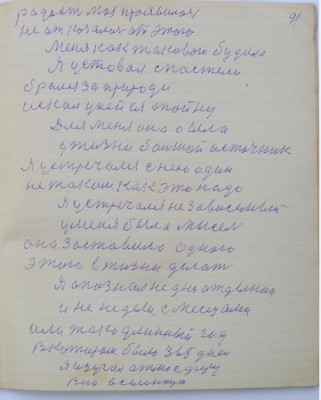 91
радост моя проявилас
не от казалас от этого
Меня как такового будила
Я уставал
брала за природи
искал у ней ея тойну
Для меня она о вела
у жизни болшой источник
Я устречался с нею один
не таким как это надо
Я устречался не зависемый
у меня была мысел
она заставила одного
этого в жизни делат
Я опознал не дни отделния
и не недели с месецами
или такой длинный год
в котором было 365 дней
Я изучал атмосферу
всю вселенную